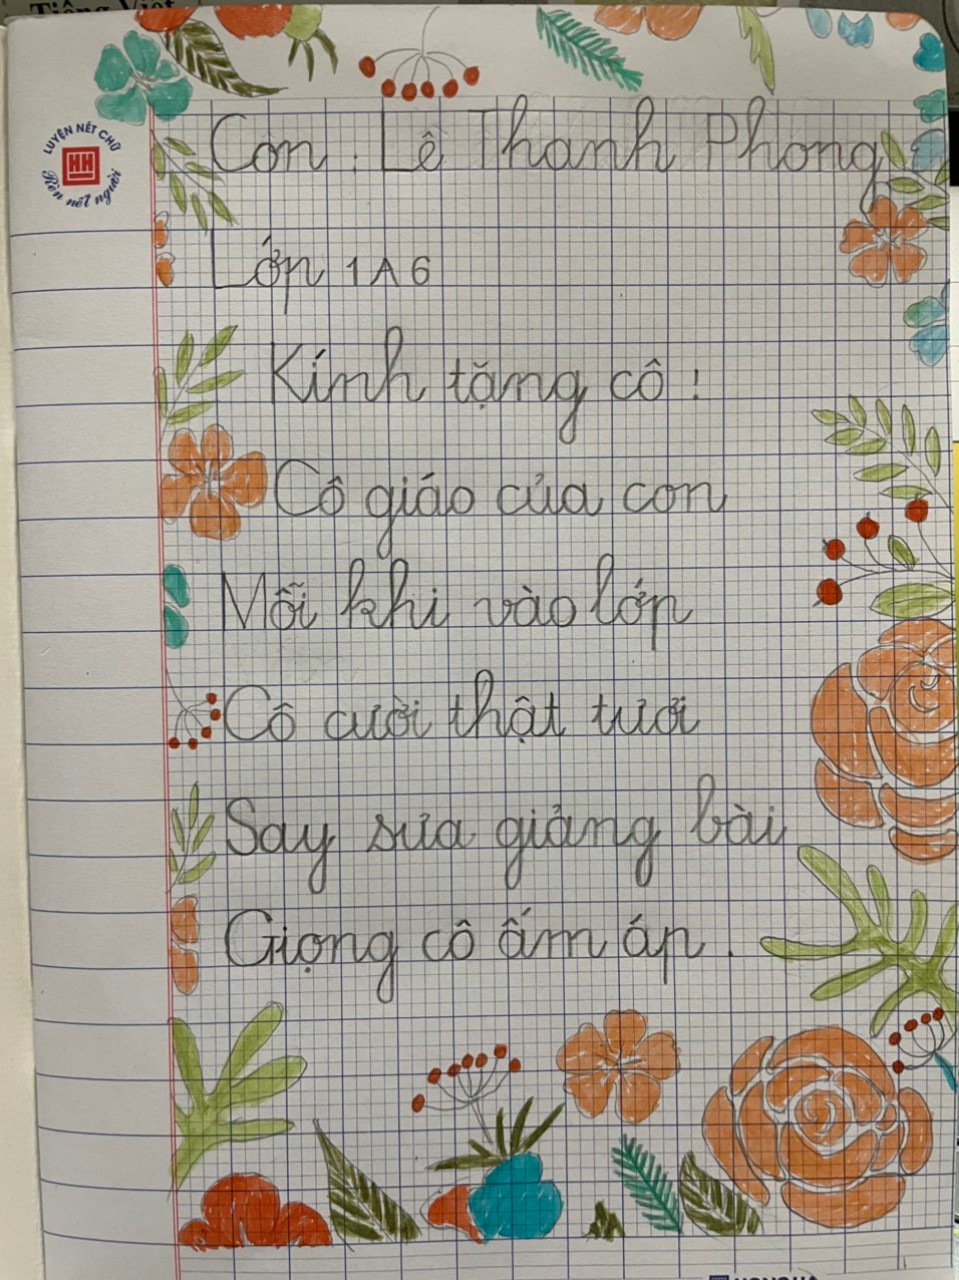 Tiếng Việt
LUYỆN NÉT CHỮ
HH
Rèn nết người
Con : Lê Thanh Phong
Lớp 1A6
Kính tặng cô !
Cô giáo của con
Mỗi khi vào lớp
Cô cười thật tươi
Say sưa giảng bài
Giọng cô ấm áp .